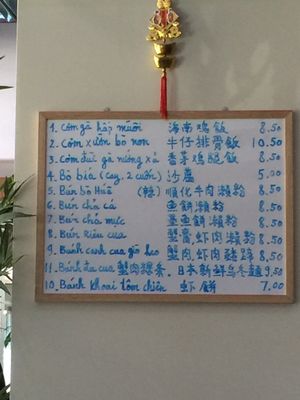 1. Cơm gà hấp muối 海南鸡飯 8.50
2. Cơm sườn bò non 牛仔排骨飯 10.50
3. Cơm đùi gà nướng xả 香茅鸡腿飯 8.50
4. Bò bía (cay, 2 cuốn) 沙薑 5.00
5. Bún bò Huế (辣) 順化牛肉瀨粉 8.50
6. Bún chả cá 魚餅瀨粉 8.50
7. Bún chả mực 墨魚餅瀨粉 8.50
8. Bún Riêu cua 蟹膏,虾肉瀨粉 8.50
9. Bánh canh cua giò heo 蟹肉,虾肉豬蹄 8.50
11. Bánh đa cua 蟹肉 日本新鲜乌冬麵 9.50
10. Bánh khoai tôm chiên 虾餅 7.00